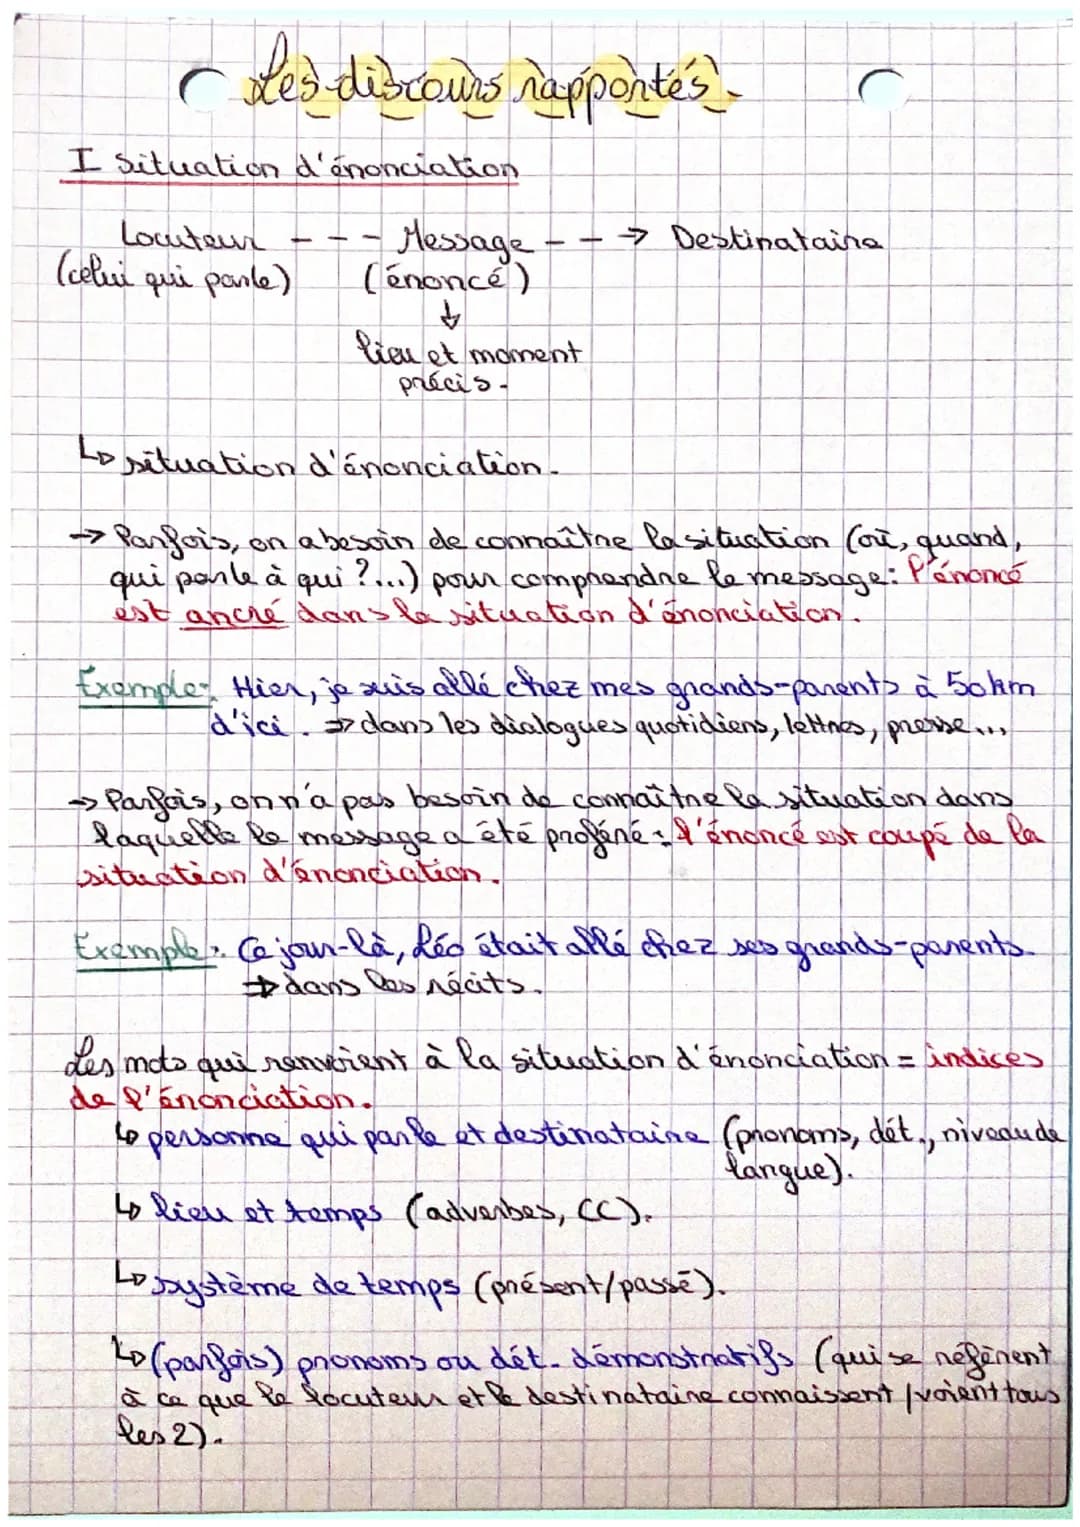 Les discours rapportés.
I Situation d'énonciation
Locuteur - - - Message - - → Destinataire
(celui qui parle) (énoncé)
↓
lieu et moment
précis.
↳ situation d'énonciation.
→ Parfois, on a besoin de connaître la situation (où, quand,
qui parle à qui ?...) pour comprendre le message : l'énoncé
est ancré dans la situation d'énonciation.
Exemple : Hier, je suis allé chez mes grands-parents à 50km
d'ici. ⇒ dans les dialogues quotidiens, lettres, presse...
→ Parfois, on n'a pas besoin de connaître la situation dans
laquelle le message a été proféré : l'énoncé est coupé de la
situation d'énonciation.
Exemple : Ce jour-là, Léo était allé chez ses grands-parents.
⇒ dans les récits.
Les mots qui renvoient à la situation d'énonciation = indices
de l'énonciation.
↳ personne qui parle et destinataire (pronoms, dét., niveau de
langue).
↳ lieu et temps (adverbes, CC).
↳ système de temps (présent/passé).
↳ (parfois) pronoms ou dét. démonstratifs (qui se réfèrent
à ce que le locuteur et le destinataire connaissent / voient tous
les 2).